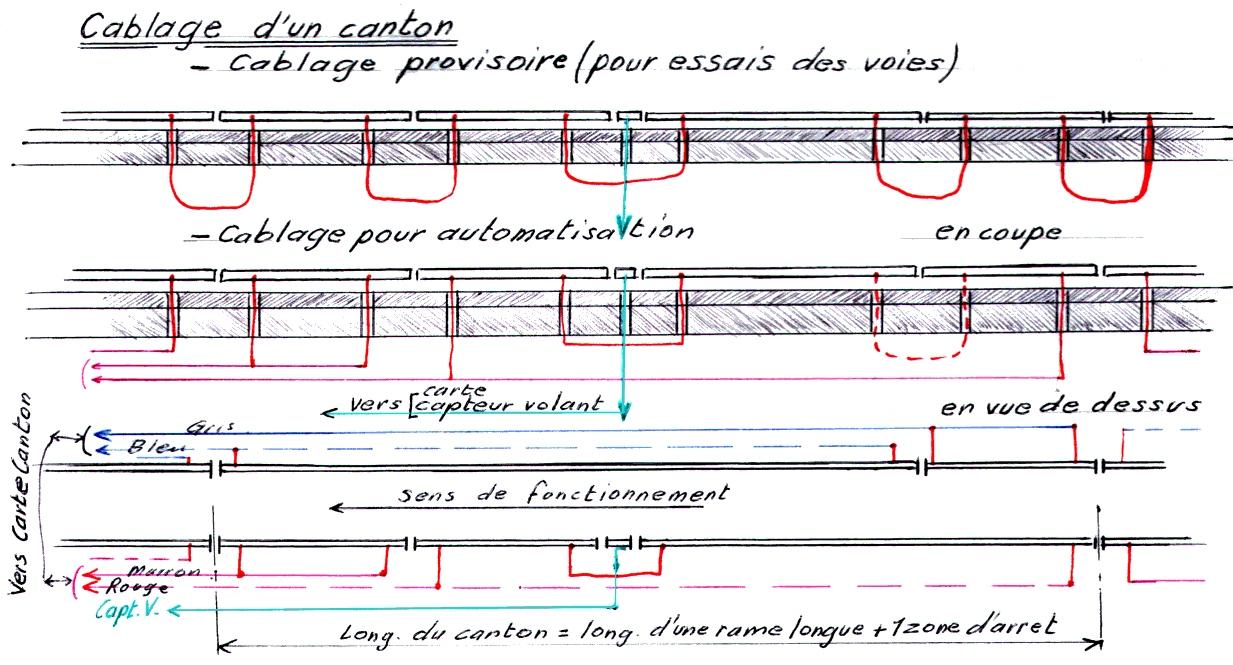 Cablage d'un canton
– Cablage provisoire (pour essais des voies)
– Cablage pour automatisation
en coupe
vers [carte
capteur volant
en vue de dessus
Gris
Bleu
Vers Carte Canton
sens de fonctionnement
Marron
Rouge
Capt. V.
Long. du canton = long. d'une rame longue + 1 zone d'arret